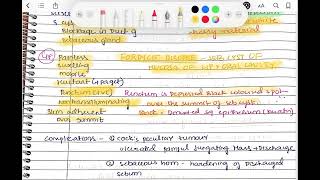 5 eyes
Blockage in Duct of cheesy material
sebaceous gland
Painless FORDYCE DISEASE - SEB. CYST OF
swelling MUCOSA OF LIP & ORAL CAVITY
mobile
fluctuant (+ paget)
Punctum (+ve) Punctum is Depressed Black coloured spot
non transilluminating over the summit of seb cyst.
Skin adherent Sac - Denuded by epithelium (keratin)
over summit
Complications - ① cock's peculiar tumour
ulcerated painful fungating Mass + Discharge
② sebaceous horn - hardening of Discharged
sebum